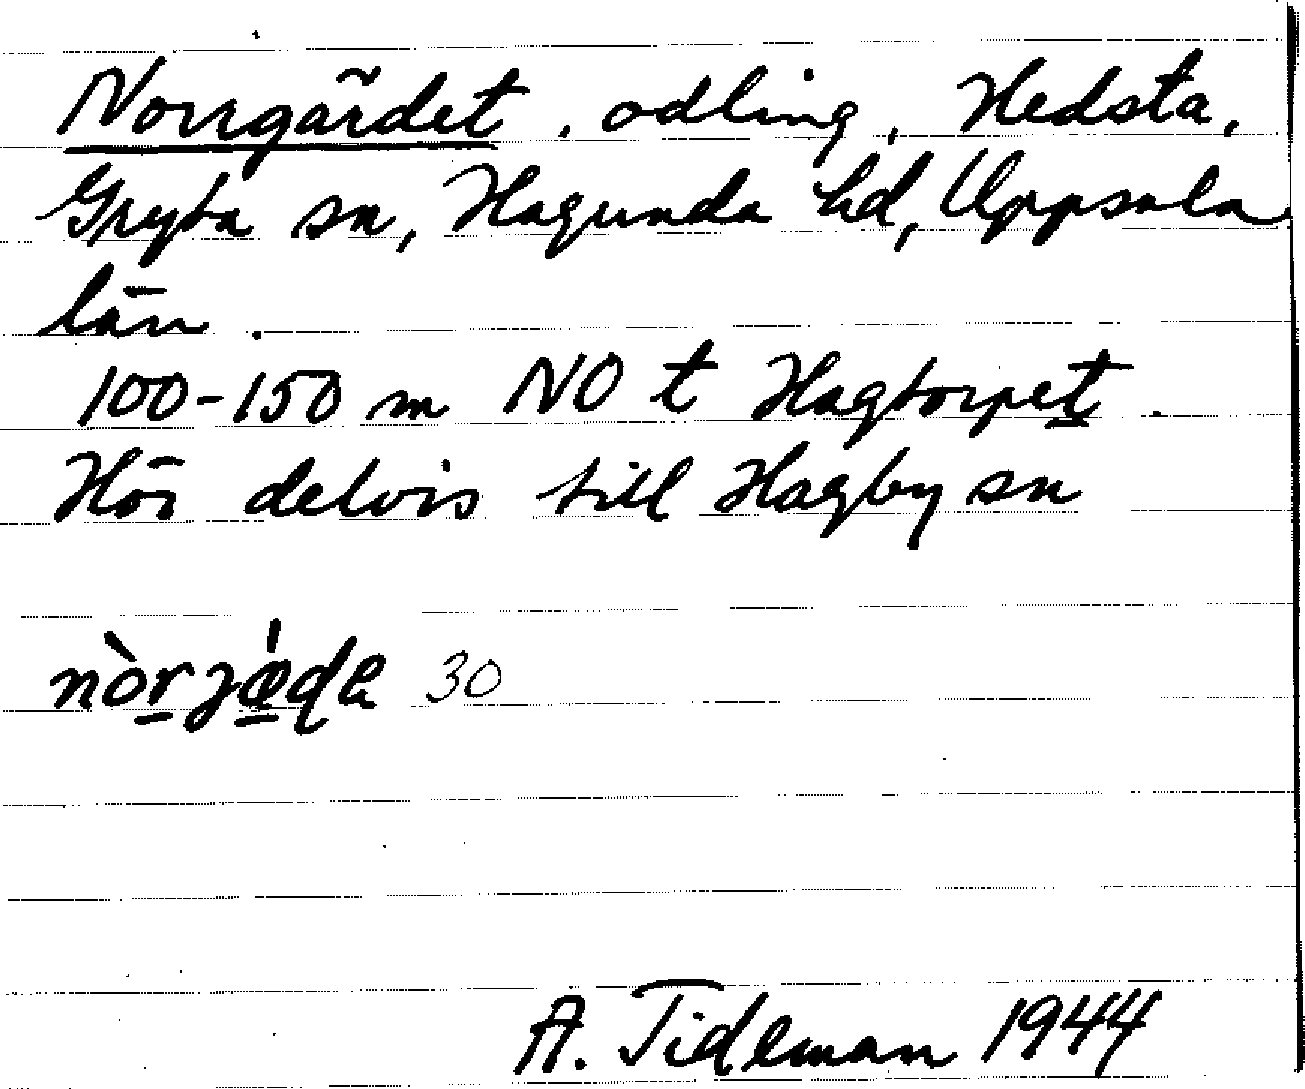 Norrgärdet, odling, Hedsta,
Gryta sn, Hagunda hd, Uppsala
län.
100-150 m NO t Hagtorpet.
Hör delvis till Hagby sn
30
A. Tideman 1944